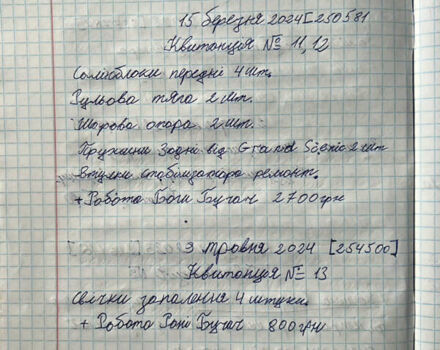 15 березня 2024 [250581
Квитанція № 11,12
Саліблоки передні 4 шт.
Рульова тяга 2 шт.
Шарова опора 2 шт.
Пружини Задні від Grand Scenic 2 шт
Втулки стабілізатора ремонт.
+ Робота Боги Бугач 2700 грн
3 травня 2024 [254500]
Квитанція № 13
Свічки запалення 4 штуки.
+ Робота Роні Бугач 800 грн